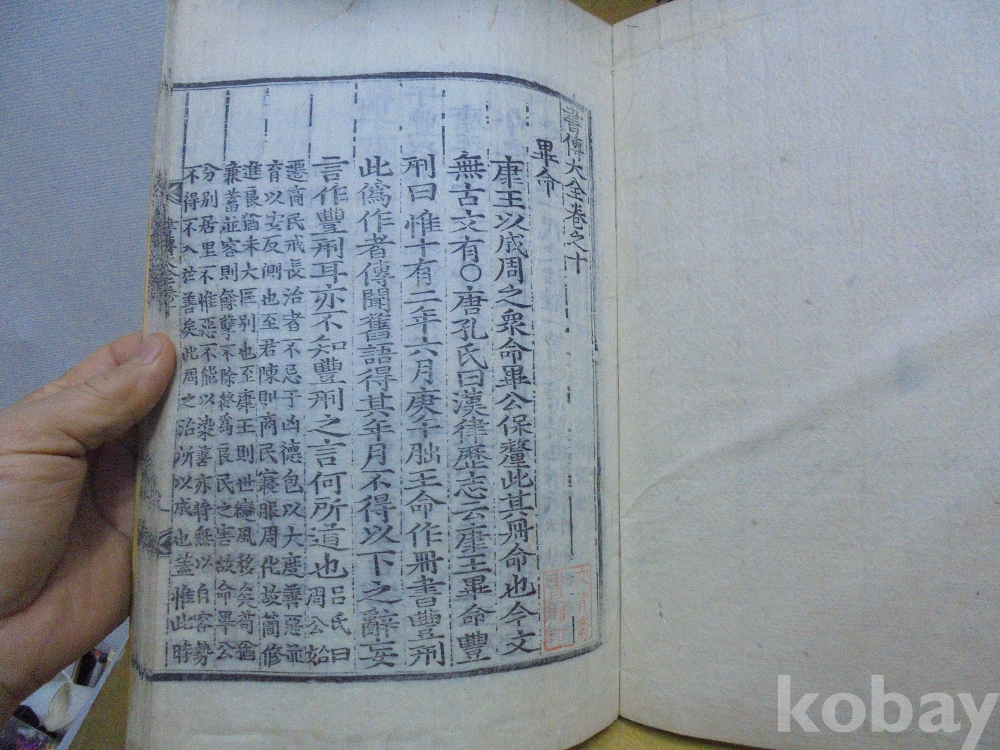 書傳大全卷之十
畢命
康王以成周之衆命畢公保釐此其冊命也今文
無古文有○唐孔氏曰漢律歷志云康王畢命豐
刑曰惟十有二年六月庚午朏王命作冊書豐刑
此僞作者傳聞舊語得其年月不得以下之辭妄
言作豐刑耳亦不知豐刑之言何所道也呂氏曰
周公始
遷商民戒長治者不忌于凶德包以大度善惡並
育以安反側也至君陳則商民寖服周化故簡修
進良猶未大區別也至康王則世變風移矣苟猶
兼蓄並容則餘孽不除終爲良民之害故命畢公
分別居里不惟惡不能以染善亦將無以自容勢
不得不入於善矣此周之治所以成也蓋惟此時
kobay